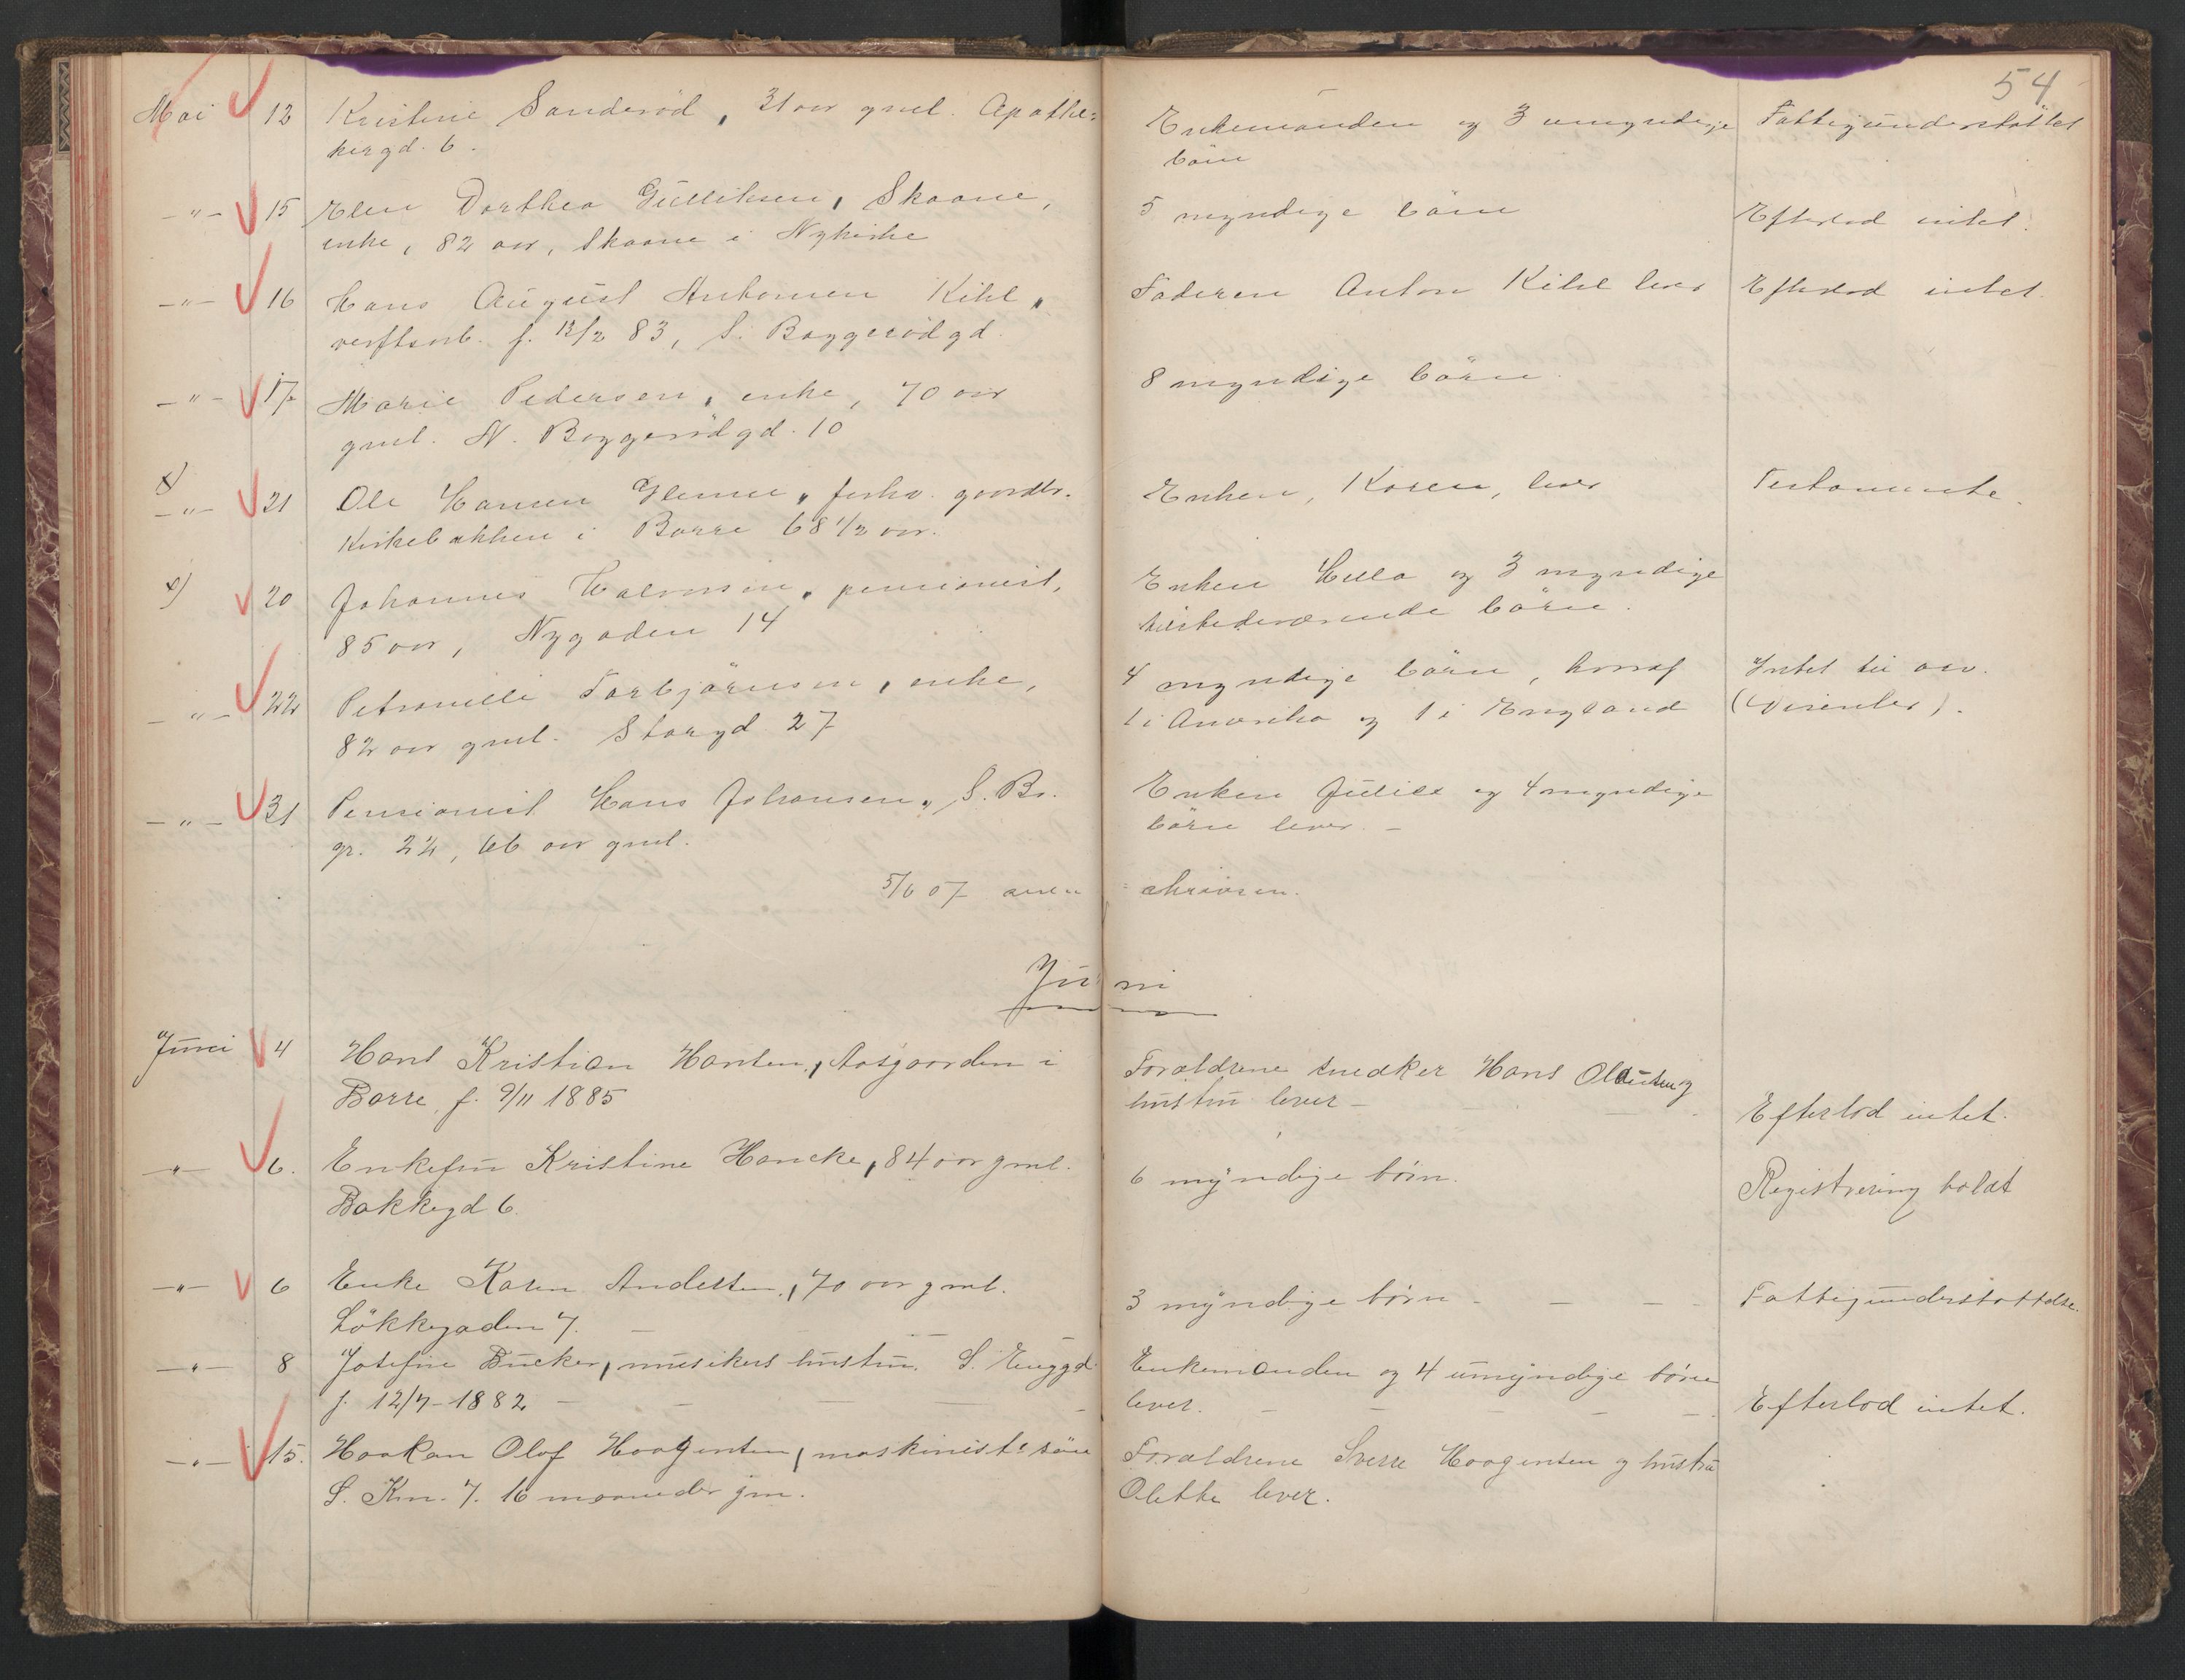 54
Mai 12 Kristine Sanderöd, 31 aar gml. Apothe-
kergd. 6.
Enkemanden og 3 umyndige
börn
Fattigunderstöttet
-"- 15 Elen Dorthea Gulliksen, Skaane,
enke, 82 aar, Skaane i Nykirke
5 myndige börn
Efterlod intet.
-"- 16 Hans August Antonsen Kihl,
verftsarb. f. 12/2 83, S. Baggerödgd.
Faderen Anton Kihl lever
Efterlod intet.
-"- 17 Marie Pedersen, enke, 70 aar
gml. N. Baggerödgd. 10
8 myndige börn.
x)
-"- 21 Ole Hansen Glenne, forhv. gaardbr.
Kirkebakken i Borre 68 1/2 aar.
Enken, Karen, lever
Testamente.
x) 20 Johannes Halvorsen, pensionist,
85 aar, Nygaden 14
Enken Hella og 3 myndige
tilstedeværende börn.
-"- 22 Petronelle Torbjörnsen, enke,
82 aar gml. Storgd 27
4 myndige börn, hvoraf
1 i Amerika og 1 i England
Intet til arv.
-"- 31 Pensionist Hans Johansen, S. Br.
gr. 22, 66 aar gml.
Enken Julie og 4 myndige
börn lever. -
5/6 07
Juni
Juni 4 Hans Kristian Hansen, Aasgaarden i
Borre, f. 9/11 1885
Forældrene snedker Hans Olausen og
hustru lever -
Efterlod intet.
-"- 6. Enkefru Kristine Hancke, 84 aar gml.
Bakkegd 6.
6 myndige börn.
Registrering holdt
-"- 6 Enke Karen Andersen, 70 aar gml.
Lökkegaden 7. -
3 myndige börn - - -
Fattigunderstöttelse.
-"- 8 Josefine Bücker, musikers hustru. S. Enggd.
f. 12/7-1882 - - - - -
Enkemanden og 4 umyndige börn
lever. - - - -
Efterlod intet.
-"- 15. Haakon Olaf Haagensen, maskinists sön
S. Km. 7. 16 maaneder gm.
Forældrene Sverre Haagensen og hustru
Olette lever.